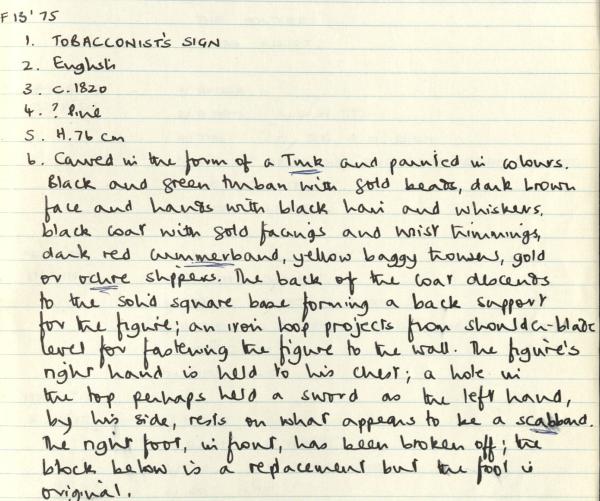 F 13'75
1. TOBACCONIST'S SIGN
2. English
3. c.1820
4. ? Pine
5. H.76 cm
6. Carved in the form of a Turk and painted in colours.
Black and green turban with gold beads, dark brown
face and hands with black hair and whiskers,
black coat with gold facings and wrist trimmings,
dark red cummerband, yellow baggy trousers, gold
or ochre slippers. The back of the coat descends
to the solid square base forming a back support
for the figure; an iron loop projects from shoulder-blade
level for fastening the figure to the wall. The figure's
right hand is held to his chest; a hole in
the top perhaps held a sword as the left hand,
by his side, rests on what appears to be a scabbard.
The right foot, in front, has been broken off; the
block below is a replacement but the foot is
original.